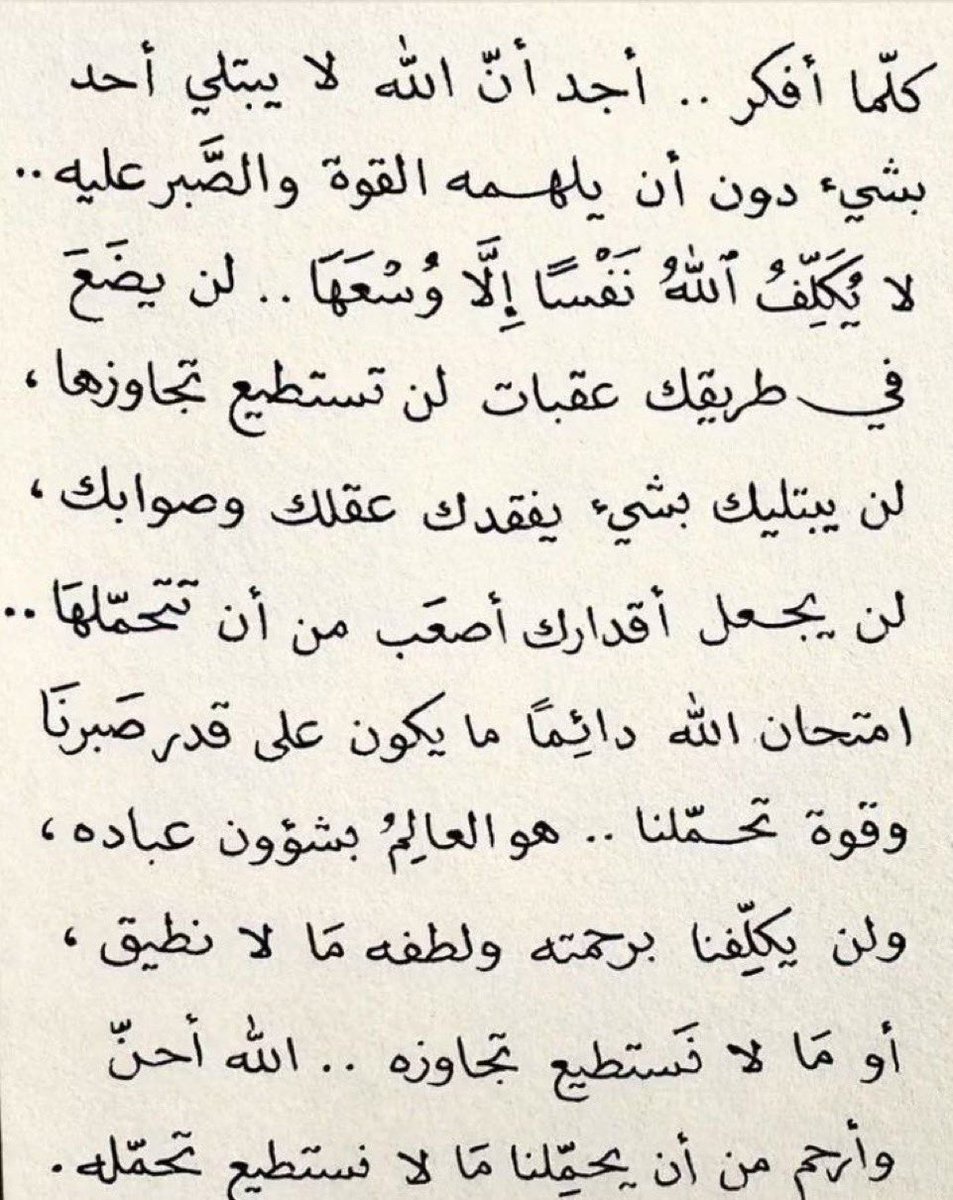 كلّما أفكر .. أجد أنّ الله لا يبتلي أحد
بشيء دون أن يلهمه القوة والصَّبر عليه ..
لا يُكَلِّفُ ٱللَّهُ نَفْسًا إِلَّا وُسْعَهَا .. لن يضَعَ
في طريقك عقبات لن تستطيع تجاوزها ،
لن يبتليك بشيء يفقدك عقلك وصوابك ،
لن يجعل أقدارك أصعَب من أن تتحمّلهَا ..
امتحان الله دائِمًا ما يكون على قدر صَبرنَا
وقوة تحمّلنا .. هو العالِمُ بشؤون عباده ،
ولن يكلِّفنا برحمته ولطفه مَا لا نطيق ،
أو مَا لا نَستطيع تجاوزه .. الله أحنّ
وأرحم من أن يحمِّلنا مَا لا نستطيع تحمّله .